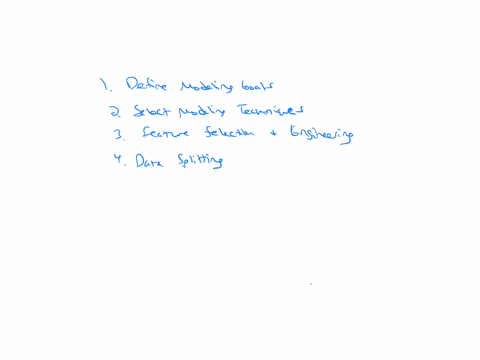 1. Define Modeling Goals
2. Select Modeling Techniques
3. Feature Selection + Engineering
4. Data Splitting